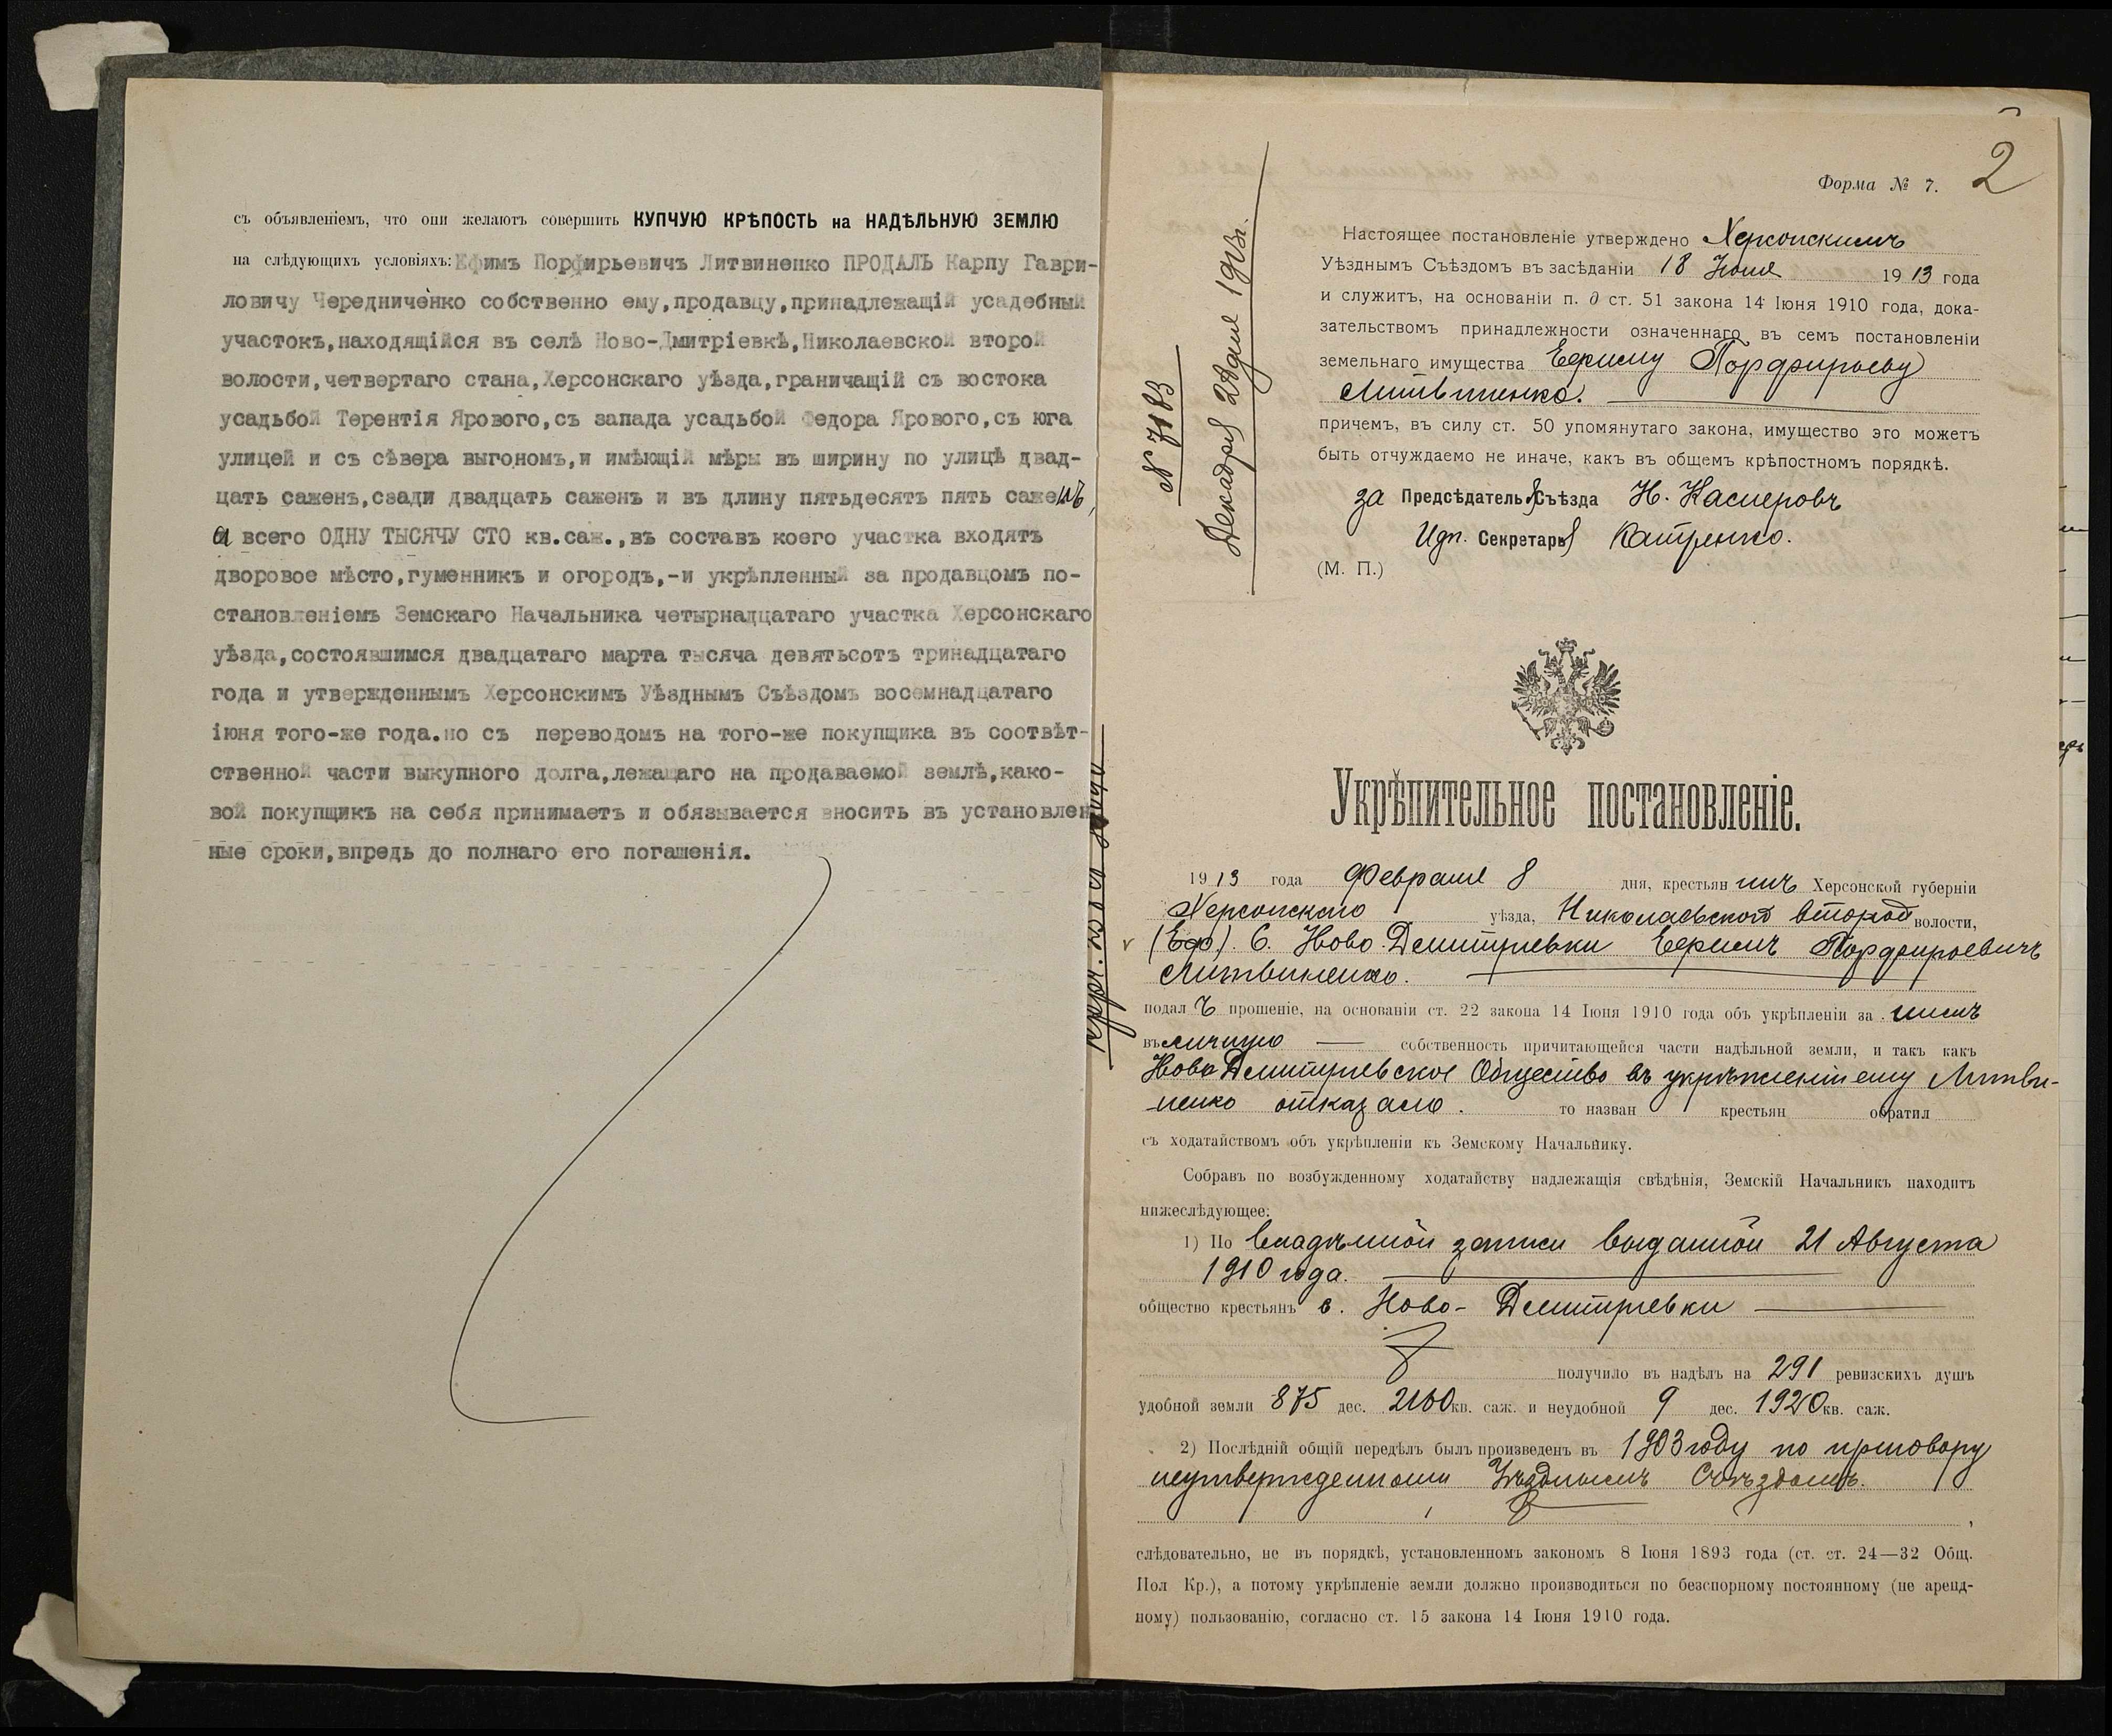 съ объявленіемъ, что они желаютъ совершить КУПЧУЮ КРѢПОСТЬ на НАДѢЛЬНУЮ ЗЕМЛЮ
на слѣдующихъ условіяхъ: Ефимъ Порфирьевичъ Литвиненко ПРОДАЛЪ Карпу Гаври-
ловичу Чередниченко собственно ему,продавцу,принадлежащій усадебный
участокъ,находящійся въ селѣ Ново-Дмитріевкѣ,Николаевской второй
волости,четвертаго стана,Херсонскаго уѣзда,граничащій съ востока
усадьбой Терентія Ярового,съ запада усадьбой Федора Ярового,съ юга
улицей и съ сѣвера выгономъ,и имѣющій мѣры въ ширину по улицѣ двад-
цать саженъ,сзади двадцать саженъ и въ длину пятьдесятъ пять саженъ,
а всего ОДНУ ТЫСЯЧУ СТО кв.саж.,въ составъ коего участка входятъ
дворовое мѣсто,гуменникъ и огородъ,-и укрѣпленный за продавцомъ по-
становленіемъ Земскаго Начальника четырнадцатаго участка Херсонскаго
уѣзда,состоявшимся двадцатаго марта тысяча девятьсотъ тринадцатаго
года и утвержденнымъ Херсонскимъ Уѣзднымъ Съѣздомъ восемнадцатаго
іюня того-же года.но съ переводомъ на того-же покупщика въ соотвѣт-
ственной части выкупного долга,лежащаго на продаваемой землѣ,како-
вой покупщикъ на себя принимаетъ и обязывается вносить въ установлен
ные сроки,впредь до полнаго его погашенія.
2
Форма № 7.
Настоящее постановленіе утверждено Херсонскимъ
Уѣзднымъ Съѣздомъ въ засѣданіи 18 Іюня 1913 года
и служитъ, на основаніи п. д ст. 51 закона 14 Іюня 1910 года, дока-
зательствомъ принадлежности означеннаго въ семъ постановленіи
земельнаго имущества Ефиму Порфирьеву
Литвиненко.
причемъ, въ силу ст. 50 упомянутаго закона, имущество это можетъ
быть отчуждаемо не иначе, какъ въ общемъ крѣпостномъ порядкѣ.
за Предсѣдатель Съѣзда Н. Касперовъ
Секретарь
(М. П.)
Декабря 2 дня 1913г.
Укрѣпительное постановленіе.
1913 года Февраля 8 дня, крестьянинъ Херсонской губерніи
Херсонскаго уѣзда, Николаевской второй волости,
(Еф). С. Ново-Дмитріевки Ефимъ Порфирьевичъ
Литвиненко.
подалъ прошеніе, на основаніи ст. 22 закона 14 Іюня 1910 года объ укрѣпленіи за нимъ
въ личную собственность причитающейся части надѣльной земли, и такъ какъ
Ново Дмитріевское Общество въ укрѣпленіи ему Литви-
ненко отказало. то назван крестьян обратил
съ ходатайствомъ объ укрѣпленіи къ Земскому Начальнику.
Собравъ по возбужденному ходатайству надлежащія свѣдѣнія, Земскій Начальникъ находитъ
нижеслѣдующее:
1) По владѣнной записи выданной 21 Августа
1910 года.
общество крестьянъ с. Ново-Дмитріевки
получило въ надѣлъ на 291 ревизскихъ душъ
удобной земли 875 дес. 2160 кв. саж. и неудобной 9 дес. 1920 кв. саж.
2) Послѣдній общій передѣлъ былъ произведенъ въ 1903 году по приговору
неутвержденному Уѣзднымъ Съѣздомъ.
слѣдовательно, не въ порядкѣ, установленномъ закономъ 8 Іюня 1893 года (ст. ст. 24—32 Общ.
Пол Кр.), а потому укрѣпленіе земли должно производиться по безспорному постоянному (не аренд-
ному) пользованію, согласно ст. 15 закона 14 Іюня 1910 года.